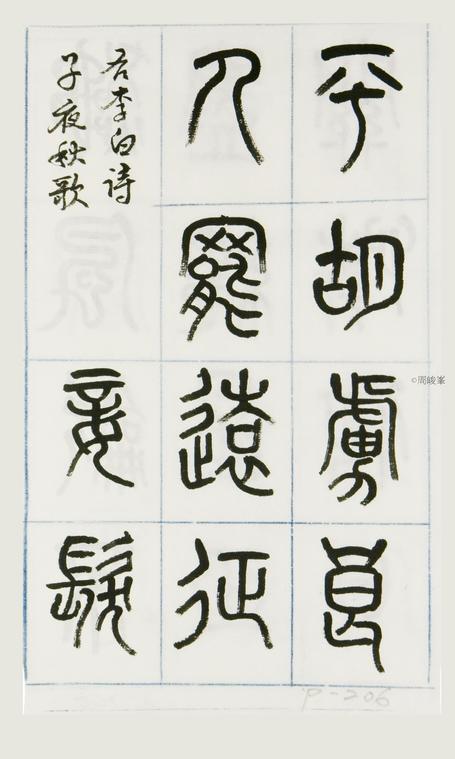 平胡虜良
人罷遠征
右李白詩
子夜秋歌
妾髮
©周峻峯
P-206